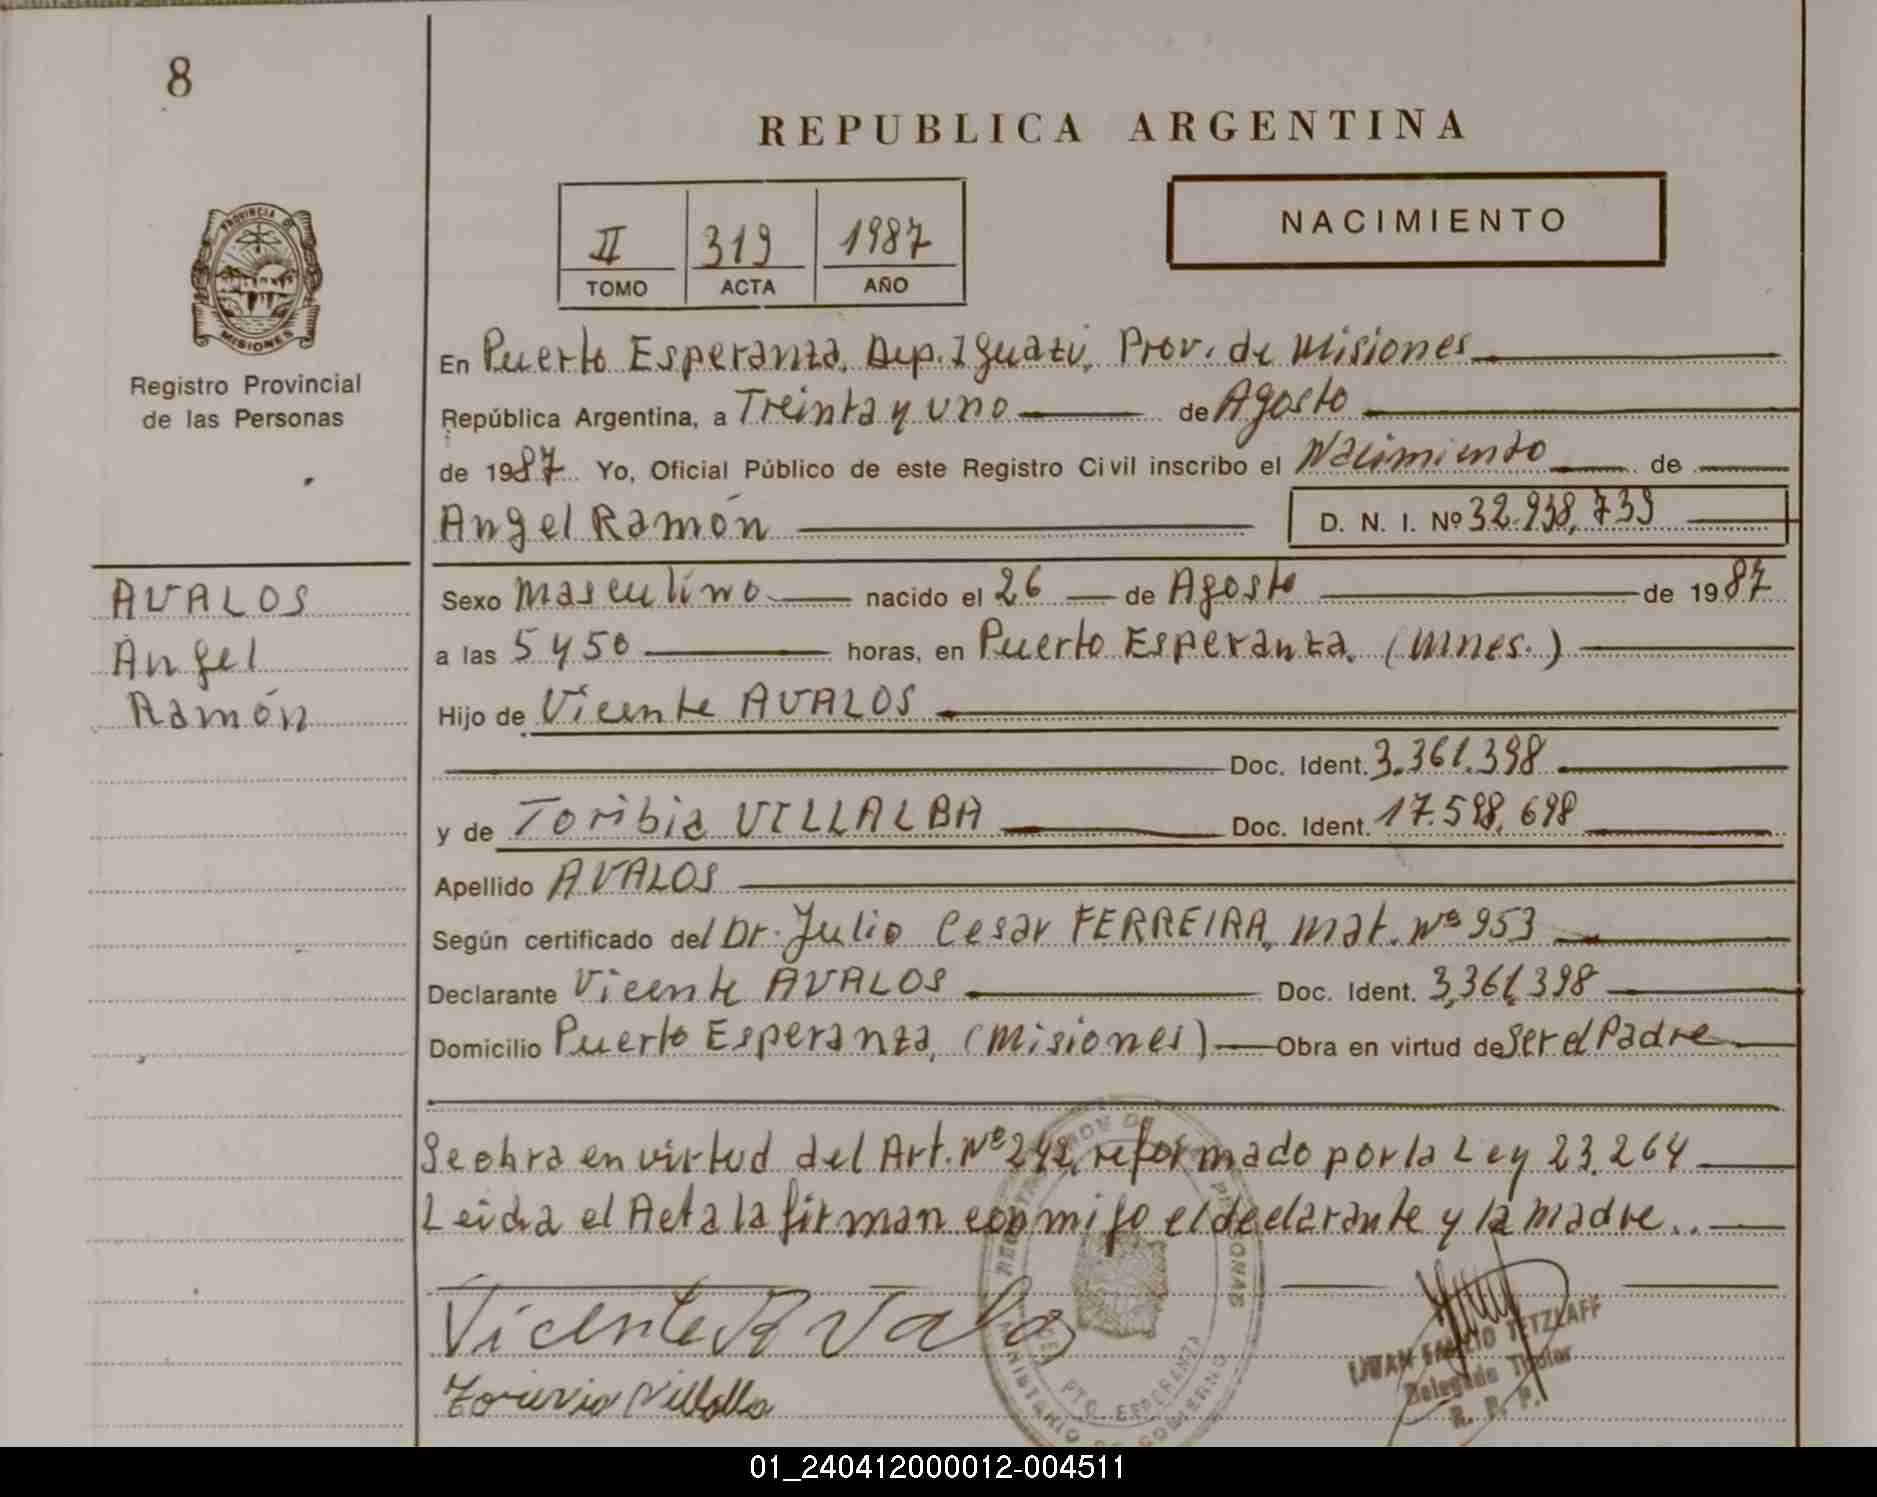 8
REPUBLICA ARGENTINA
NACIMIENTO
II 319 1987
TOMO ACTA AÑO
PROVINCIA DE
MISIONES
Registro Provincial
de las Personas
En Puerto Esperanza, Dep. Iguazú, Prov. de Misiones
República Argentina, a Treinta y uno de Agosto
de 1987 Yo, Oficial Público de este Registro Civil inscribo el Nacimiento de
Angel Ramón D. N. I. Nº 32.938.739
AVALOS
Angel
Ramón
Sexo masculino nacido el 26 de Agosto de 1987
a las 5 y 50 horas, en Puerto Esperanza, (Mnes.)
Hijo de Vicente AVALOS
Doc. Ident. 3.361.398
y de Toribia VILLALBA Doc. Ident. 17.598.698
Apellido AVALOS
Según certificado del Dr. Julio Cesar FERREIRA, Mat. Nº 953
Declarante Vicente AVALOS Doc. Ident. 3.361.398
Domicilio Puerto Esperanza, (Misiones) Obra en virtud de Ser el Padre
Se obra en virtud del Art. Nº 242, reformado por la Ley 23.264
Leida el Acta la firman conmigo el declarante y la madre..
Vicente Avalos
Torivia Villalba
PTO. ESPERANZA
MINISTERIO DE GOBIERNO
JUAN EMILIO TETZLAFF
Delegado Titular
R. P. P.
01_240412000012-004511